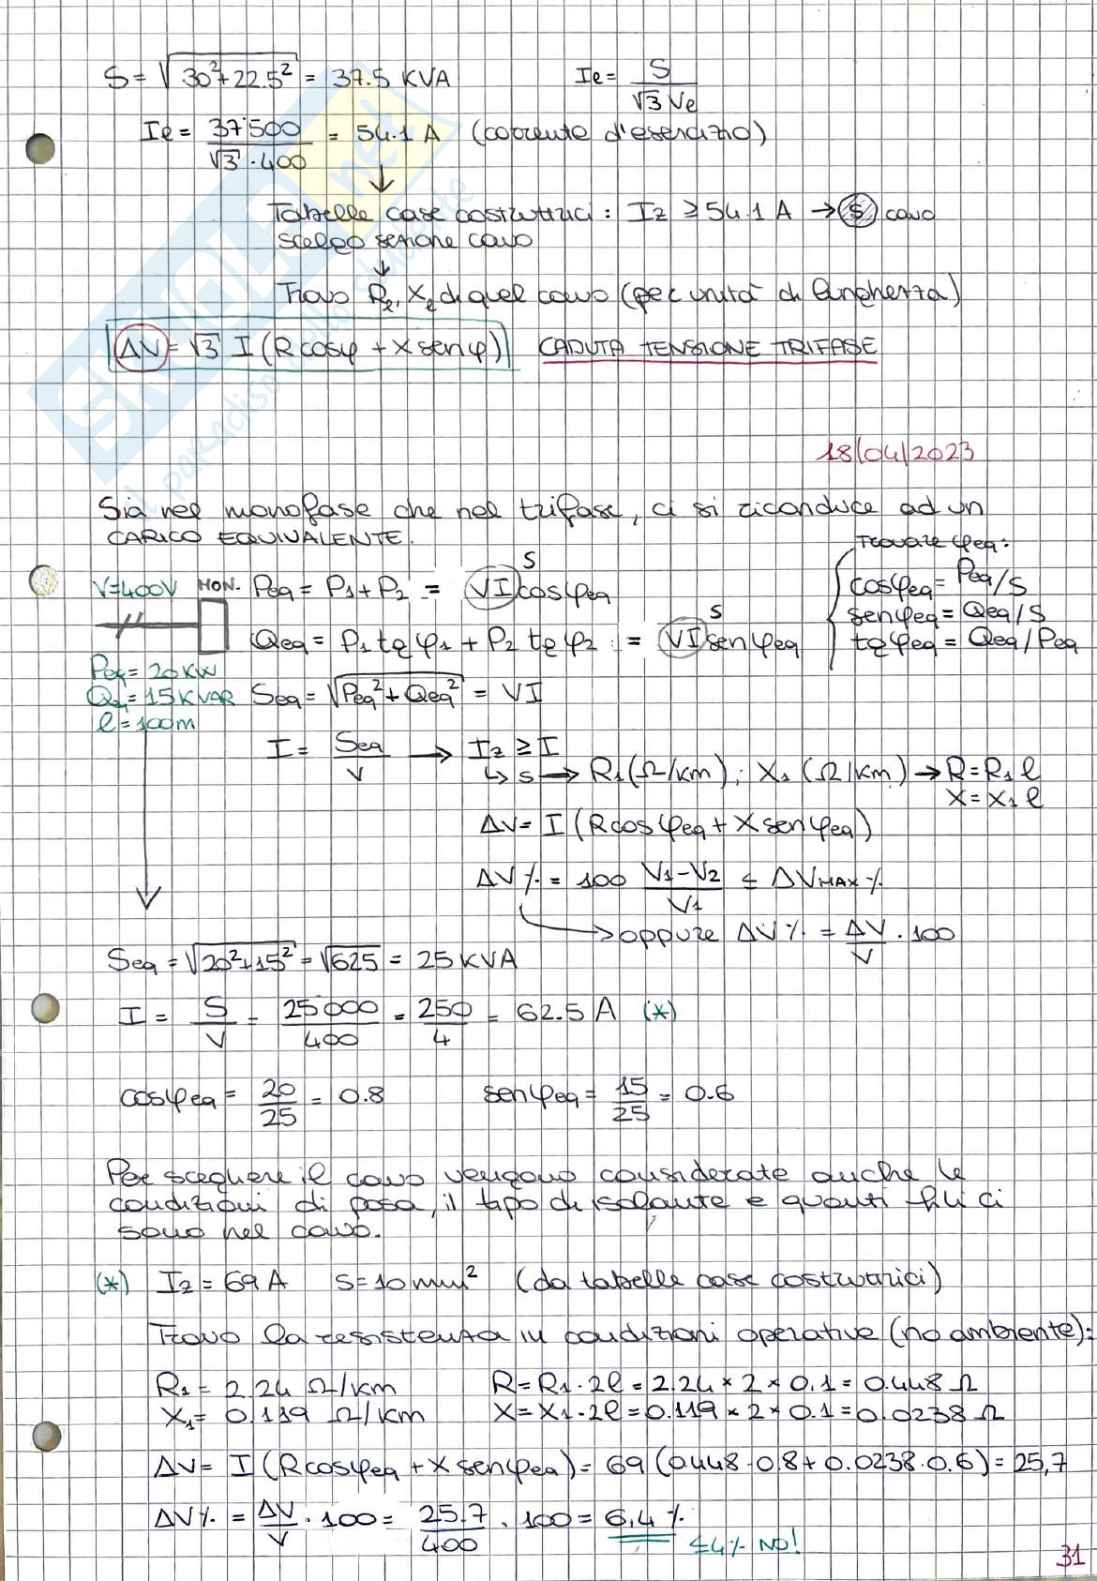 S = √(30²+22.5²) = 37.5 KVA    Ie = S / (√3 Ve)
Ie = 37'500 / (√3 · 400) = 54.1 A (corrente d'esercizio)
↓
Tabelle case costruttrici: Iz ≥ 54.1 A → (S) cavo
scelgo sezione cavo
↓
Trovo Re, Xe di quel cavo (per unità di lunghezza)
ΔV = √3 I (R cosφ + X senφ)    CADUTA TENSIONE TRIFASE
18/04/2023
Sia nel monofase che nel trifase, ci si riconduce ad un
CARICO EQUIVALENTE.
Trovare φeq:
V=400V MON. Peq = P1+P2 = (VI) S cosφeq    cosφeq = Peq/S
senφeq = Qeq/S
Qeq = P1 tgφ1 + P2 tgφ2 = (VI) S senφeq    tgφeq = Qeq/Peq
Peq = 20 KW
Q = 15 KVAR    Seq = √(Peq²+Qeq²) = VI
l = 100m
I = Seq / V → Iz ≥ I
↳ S → R1 (Ω/km), X1 (Ω/km) → R = R1 l
X = X1 l
ΔV = I (R cosφeq + X senφeq)
ΔV% = 100 (V1-V2) / V1 ≤ ΔVMAX%
→ oppure ΔV% = ΔV / V · 100
Seq = √(20²+15²) = √625 = 25 KVA
I = S / V = 25'000 / 400 = 250 / 4 = 62.5 A (*)
cosφeq = 20 / 25 = 0.8    senφeq = 15 / 25 = 0.6
Per scegliere il cavo vengono considerate anche le
condizioni di posa, il tipo di isolante e quanti fili ci
sono nel cavo.
(*) Iz = 69 A    S = 10 mm² (da tabelle case costruttrici)
Trovo la resistenza in condizioni operative (no ambiente):
R1 = 2.24 Ω/km    R = R1 · 2l = 2.24 * 2 * 0.1 = 0.448 Ω
X1 = 0.119 Ω/km    X = X1 · 2l = 0.119 * 2 * 0.1 = 0.0238 Ω
ΔV = I (R cosφeq + X senφeq) = 69 (0.448 · 0.8 + 0.0238 · 0.6) = 25,7
ΔV% = ΔV / V · 100 = 25.7 / 400 · 100 = 6,4 %
≤4% NO!
31